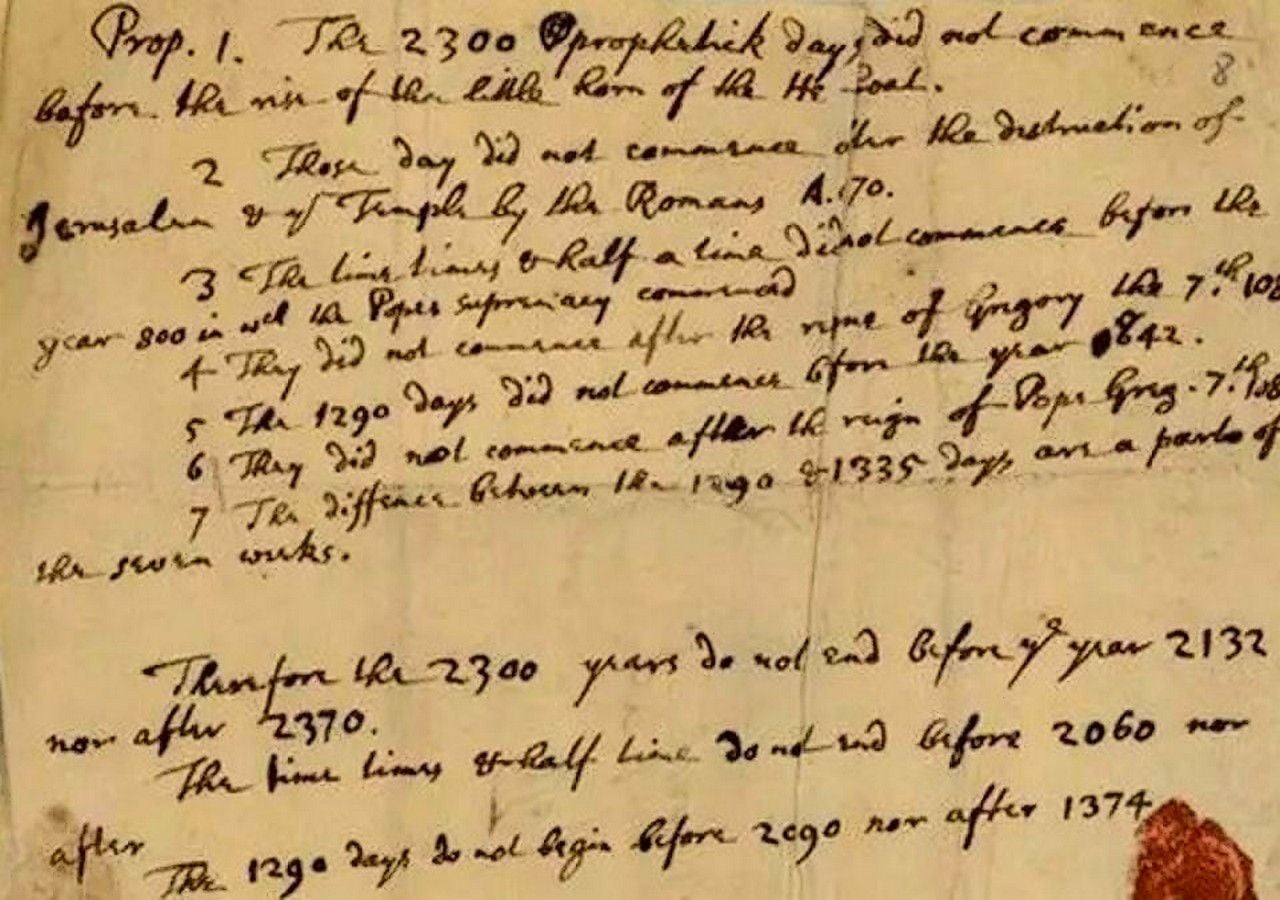 Prop. 1. The 2300 prophetick days did not commence
8
before the rise of the little horn of the He Goat.
2 Those day did not commence after the destruction of
Jerusalem & ye Temple by the Romans A. 70.
3 The time times & half a time did not commence before the
year 800 in wch the Popes supremacy commenced
4 They did not commence after the reigne of Gregory the 7.th 108
5 The 1290 days did not commence before the year 842.
6 They did not commence after the reign of Pope Greg. 7.th 108
7 The diffence between the 1290 & 1335 days are a parts of
the seven weeks.
Therefore the 2300 years do not end before ye year 2132
nor after 2370.
The time times & half time do not end before 2060 nor
after
The 1290 days do not begin before 2090 nor after 1374